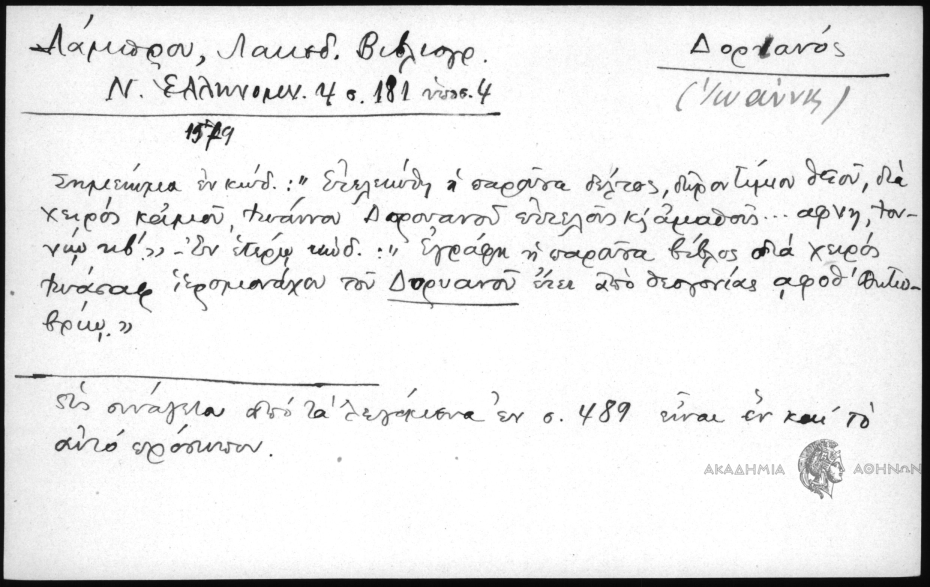 Λάμπρου, Λακεδ. Βιβλιογρ.
Ν. Ἑλληνομν. 4 σ. 181 ὑποσ. 4
1579
Δοριανός
(Ἰωάννης)
Σημείωμα ἐν κώδ.: "Ἐτελειώθη ἡ παροῦσα δέλτος, δῶρον τίμιον θεοῦ, διὰ
χειρὸς κἀμοῦ, Ἰωάννου Δορυανοῦ εὐτελοῦς κ̀ ἀμαθοῦς... αφνη, Ἰου-
νίῳ κβ´.» – Ἐν ἑτέρῳ κώδ.: "Ἐγράφη ἡ παροῦσα βίβλος διὰ χειρὸς
Ἰωάσαφ ἱερομονάχου τοῦ Δορυανοῦ ἔτει ἀπὸ θεογονίας ͵αφοθ´ Ὀκτω-
βρίῳ.»
ὡς συνάγεται ἀπὸ τὰ λεγόμενα ἐν σ. 489 εἶναι ἓν καὶ τὸ
αὐτὸ πρόσωπον.
ΑΚΑΔΗΜΙΑ ΑΘΗΝΩΝ